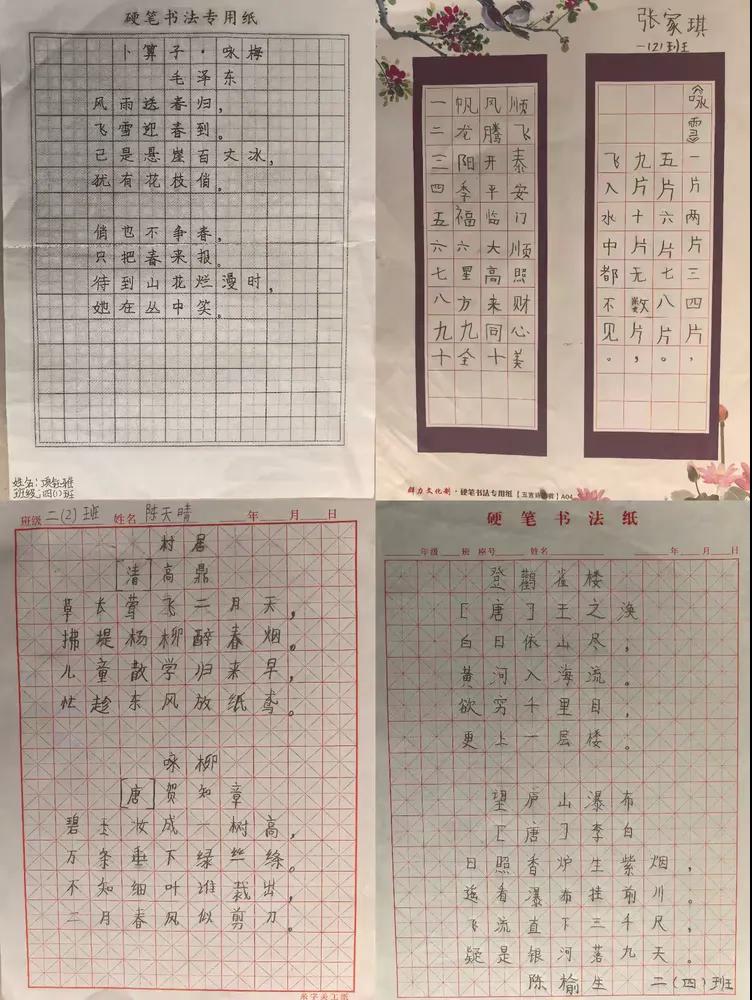 硬笔书法专用纸
卜算子·咏梅
毛泽东
风雨送春归，
飞雪迎春到。
已是悬崖百丈冰，
犹有花枝俏。
俏也不争春，
只把春来报。
待到山花烂漫时，
她在丛中笑。
姓名:
班级:四(1)班
张家琪
一(2)班
咏雪
一片两片三四片，
五片六片七八片。
九片十片无数片，
飞入水中都不见。
一帆风顺
二龙腾飞
三阳开泰
四季平安
五福临门
六六大顺
七星高照
八方来财
九九同心
十全十美
群力文化制·硬笔书法专用纸 A04
班级 二(2)班 姓名 陈天晴 年 月 日
村居
[清]高鼎
草长莺飞二月天，
拂堤杨柳醉春烟。
儿童散学归来早，
忙趁东风放纸鸢。
咏柳
[唐]贺知章
碧玉妆成一树高，
万条垂下绿丝绦。
不知细叶谁裁出，
二月春风似剪刀。
硬笔书法纸
年级 班 座号 姓名 年 月 日
登鹳雀楼
[唐]王之涣
白日依山尽，
黄河入海流。
欲穷千里目，
更上一层楼。
望庐山瀑布
[唐]李白
日照香炉生紫烟，
遥看瀑布挂前川。
飞流直下三千尺，
疑是银河落九天。
陈榆生 二(四)班